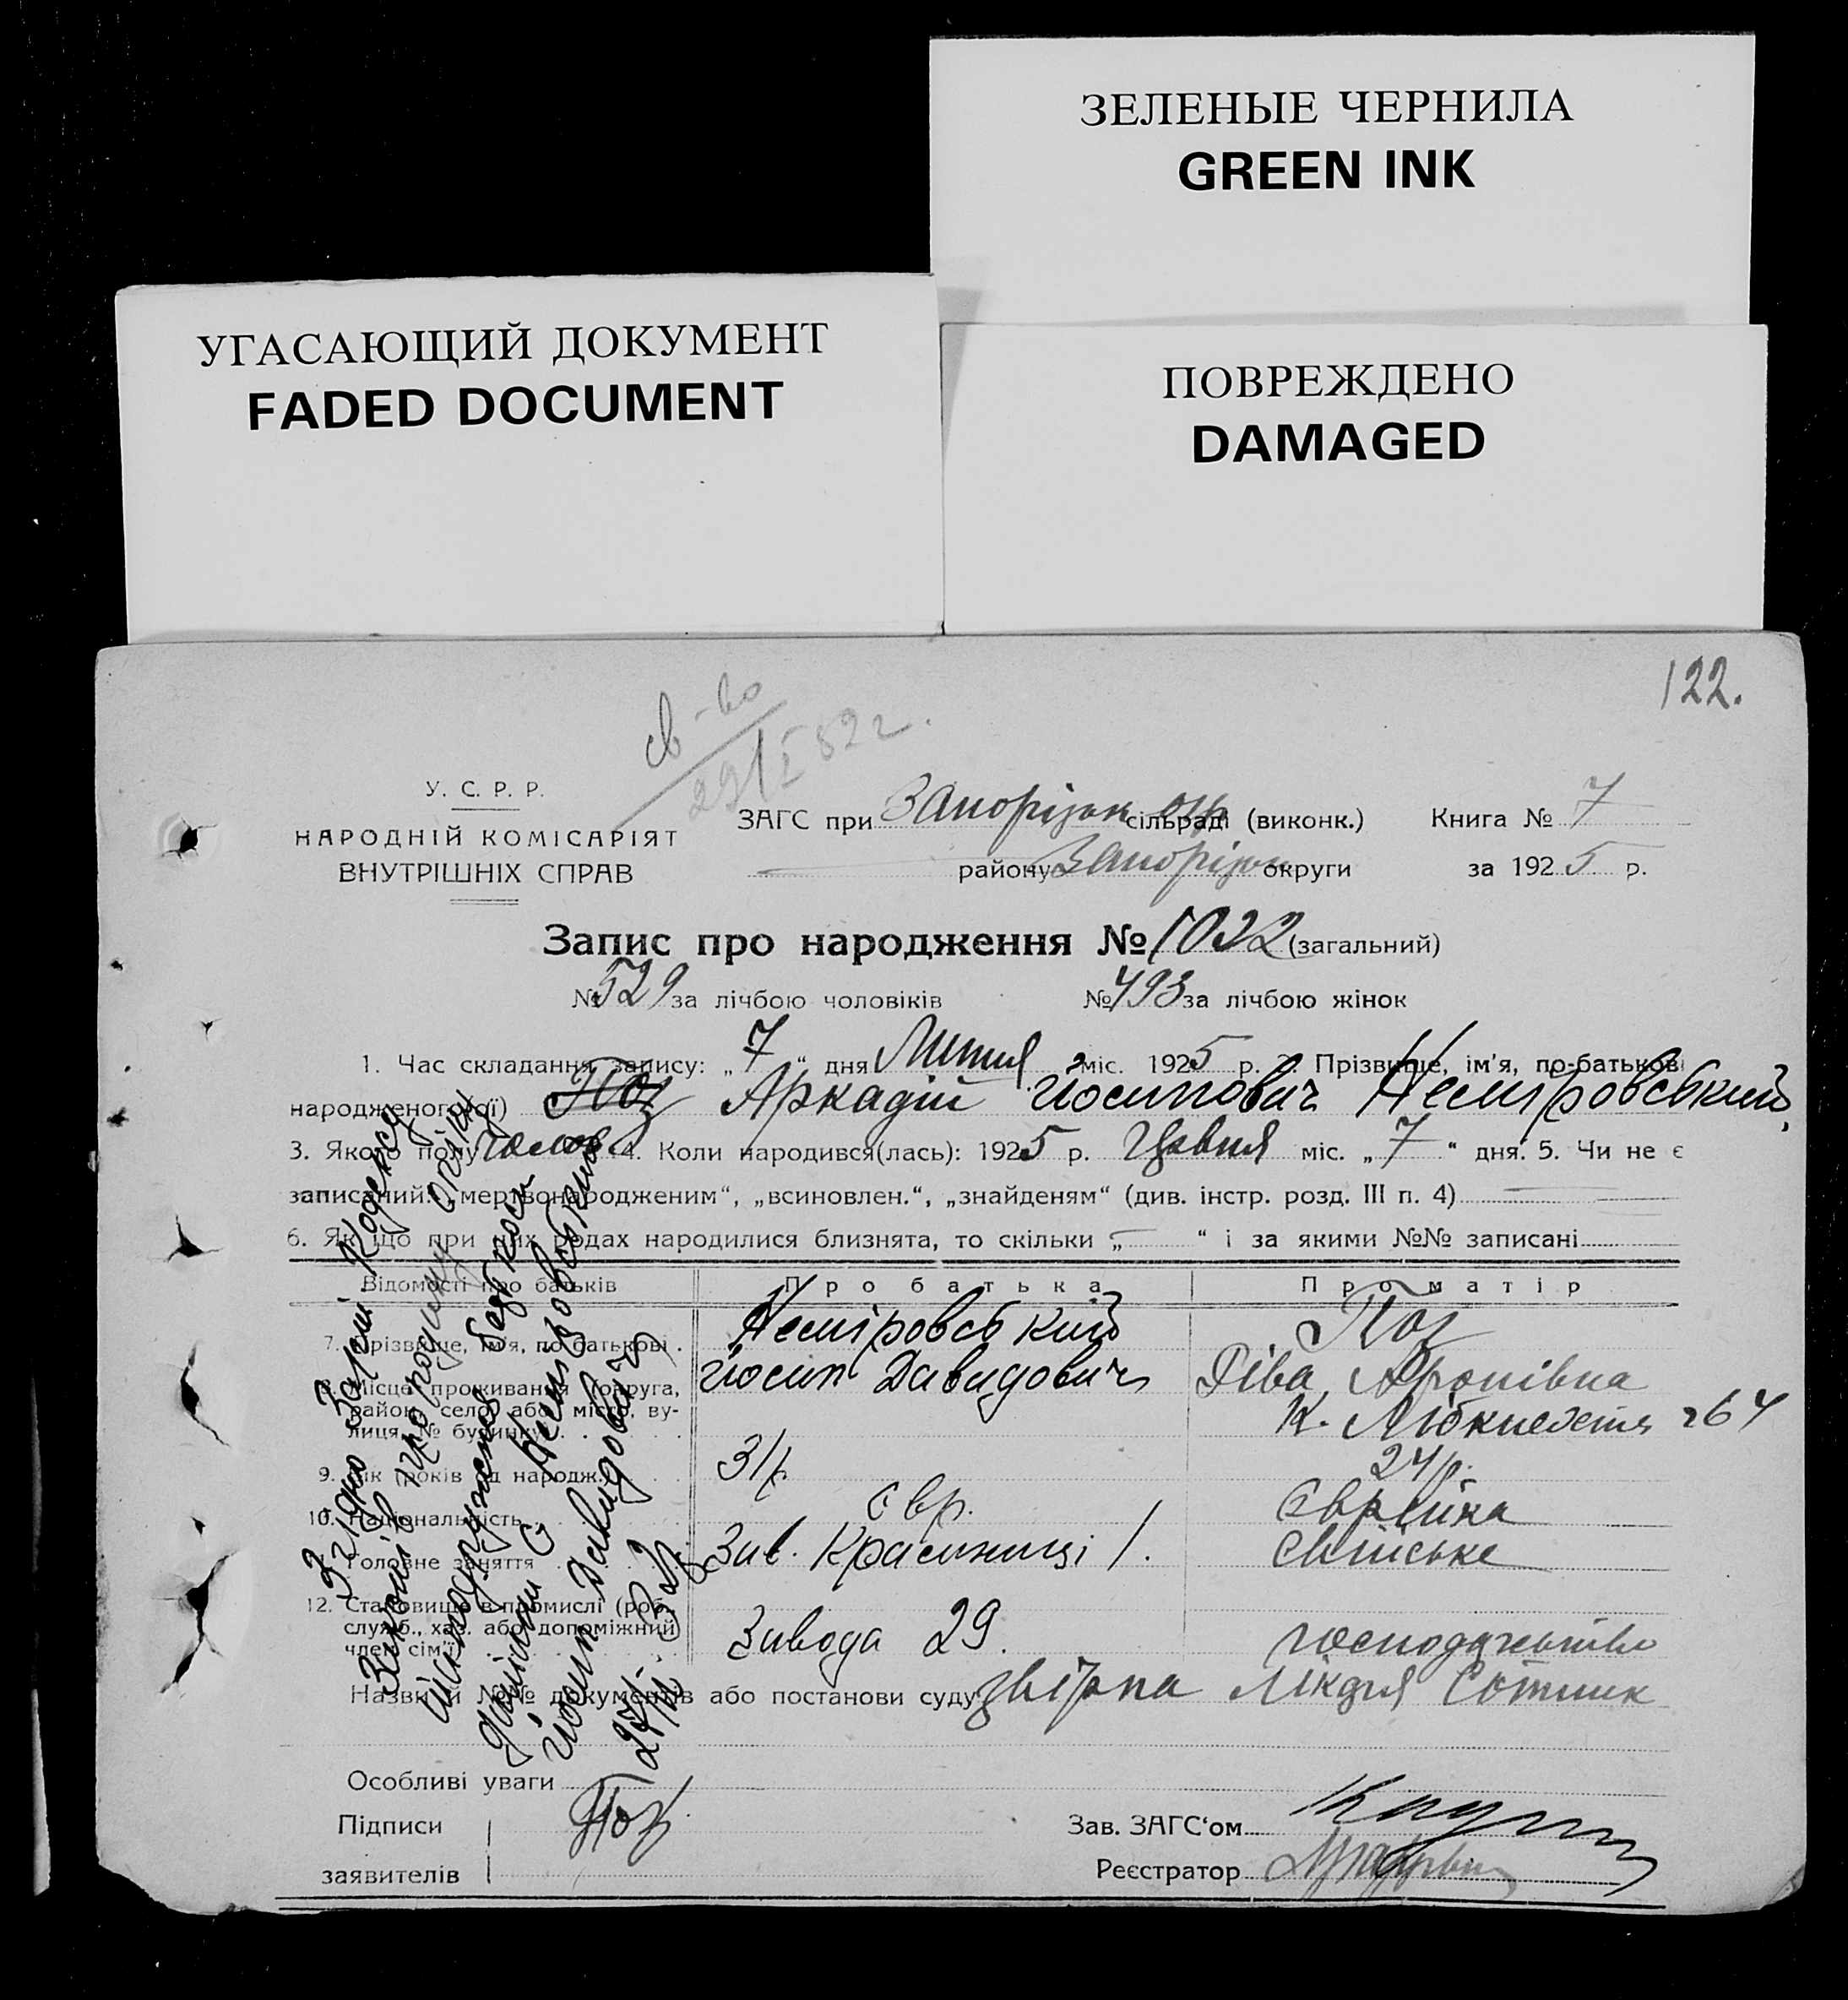 ЗЕЛЕНЫЕ ЧЕРНИЛА
GREEN INK
УГАСАЮЩИЙ ДОКУМЕНТ
FADED DOCUMENT
ПОВРЕЖДЕНО
DAMAGED
122.
св-во
У. С. Р. Р.
НАРОДНІЙ КОМІСАРІЯТ
ВНУТРІШНІХ СПРАВ
ЗАГС при Запорізьк окр сільраді (виконк.) Книга № 7
району Запорізьк округи за 1925 р.
Запис про народження № 1022 (загальний)
№ 529 за лічбою чоловіків № 493 за лічбою жінок
1. Час складання запису: „7“ дня Липня міс. 1925 р. 2. Прізвище, ім'я, по-батькові
народженого(ої) Поз Аркадій Йосипович Неміровський
3. Якого полу чолов 4. Коли народився(лась): 1925 р. міс. „7“ дня. 5. Чи не є
записаний: „мертвонародженим“, „всиновлен.“, „знайденям“ (див. інстр. розд. III п. 4)
6. Як що при них родах народилися близнята, то скільки „ “ і за якими №№ записані
Відомості про батьків Про батька Про матір
7. Прізвище, ім'я, по батькові Неміровський Поз
Йосип Давидович Ріва Аронівна
8. Місце проживання (округа, район, село, або місто, вулиця, № будинку) К. Лібкнехта 64
9. Вік (років од народж.) 31 р. 24 р.
10. Національність євр. Єврейка
11. Головне заняття Зав. Крамниці 1.
12. Становище в промислі (роб., служб., хаз. або допоміжний член сім'ї) Завода 29.
Назви й №№ документів або постанови суду
Згідно Зміни Кодексу
Законів про родину опіку
Йосип Давидович
Особливі уваги
Підписи
заявителів
Поз
Зав. ЗАГС'ом
Реєстратор